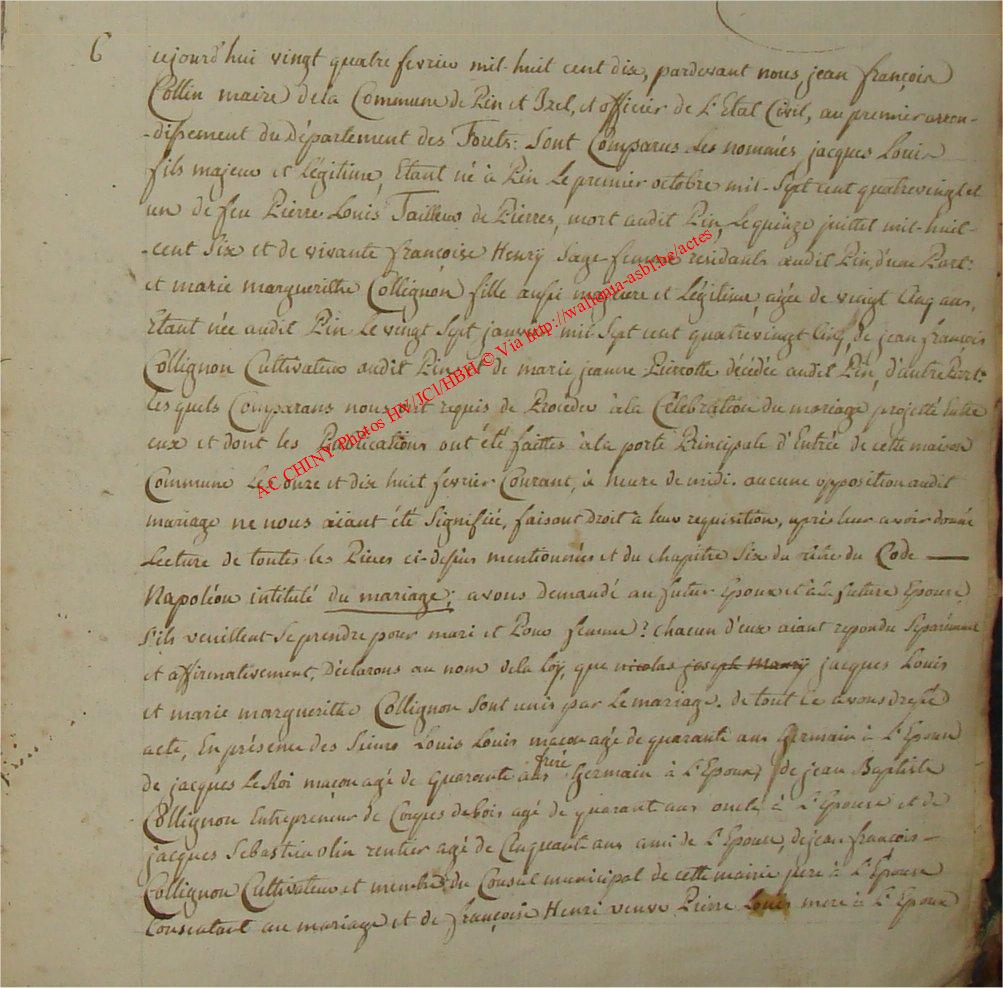 6
aujourd'hui vingt quatre fevrier mil-huit cent dix, pardevant nous, jean françois
Collin maire dela Commune de Pin et Izel, et officier de L'Etat Civil, au premier arron-
-dissement du Département des Forêts: Sont Comparus les nommés jacques Louis
fils majeur et légitime, Etant né à Pin Le premier octobre mil-Sept cent quatrevingt et
un de feu Pierre Louis Tailleur de Pierres, mort audit Pin, Le quinze juillet mil-huit-
-cent Six et de vivante françoise Henrÿ Sage-femme residants audit Pin, d'une Part:
et marie margueritte Collignon fille aussi majeure et Légitime, agée de vingt Cinq ans,
Etant née audit Pin Le vingt Sept janvier mil-Sept cent quatrevingt Cinq, de jean françois
Collignon Cultivateur audit Pin et de marie jeanne Pierrotte décédée audit Pin, d'autre Part:
Les quels Comparans nous ont requis de Proceder à la Célébration du mariage projetté Entre
eux et dont les Publications ont été faittes à la porte Principale d'Entrée de cette maison
Commune Les onze et dix huit fevrier Courant, à heure de midi. aucune opposition audit
mariage ne nous aiant été Signifiée, faisant droit à leur requisition, après leur avoir donné
Lecture de toutes les Pieces ci-dessus mentionnées et du chapitre Six du titre du Code
Napoléon intitulé du mariage; avons demandé au futur Epoux et à la future Epouse
S'ils veuillent Se prendre pour mari et Pour femme? chacun d'eux aiant repondu Séparément
et affirmativement, Déclarons au nom dela Loÿ, que nicolas joseph Maury jacques Louis
et marie margueritte Collignon Sont unis par Le mariage. de tout ce avons dressé
acte, En présence des Sieurs Louis Louis maçon agé de quarante ans Germain à L'Epoux
frere
de jacques Le Roi maçon agé de quarante ans Germain à L'Epoux, de jean Baptiste
Collignon Entrepreneur de Coupes de bois agé de quarante ans oncle à L'Epouse et de
jacques Sebastien olin rentier agé de Cinquante ans ami de L'Epouse, de jean françois
Collignon Cultivateur et membre du Conseil municipal de cette mairie pere à L'Epouse
Consentant au mariage et de françoise Henri veuve Pierre Louis mere à L'Epoux
AC CHINY Photos HW/JCl/HBH © Via http://wallonia-asbl.be/actes